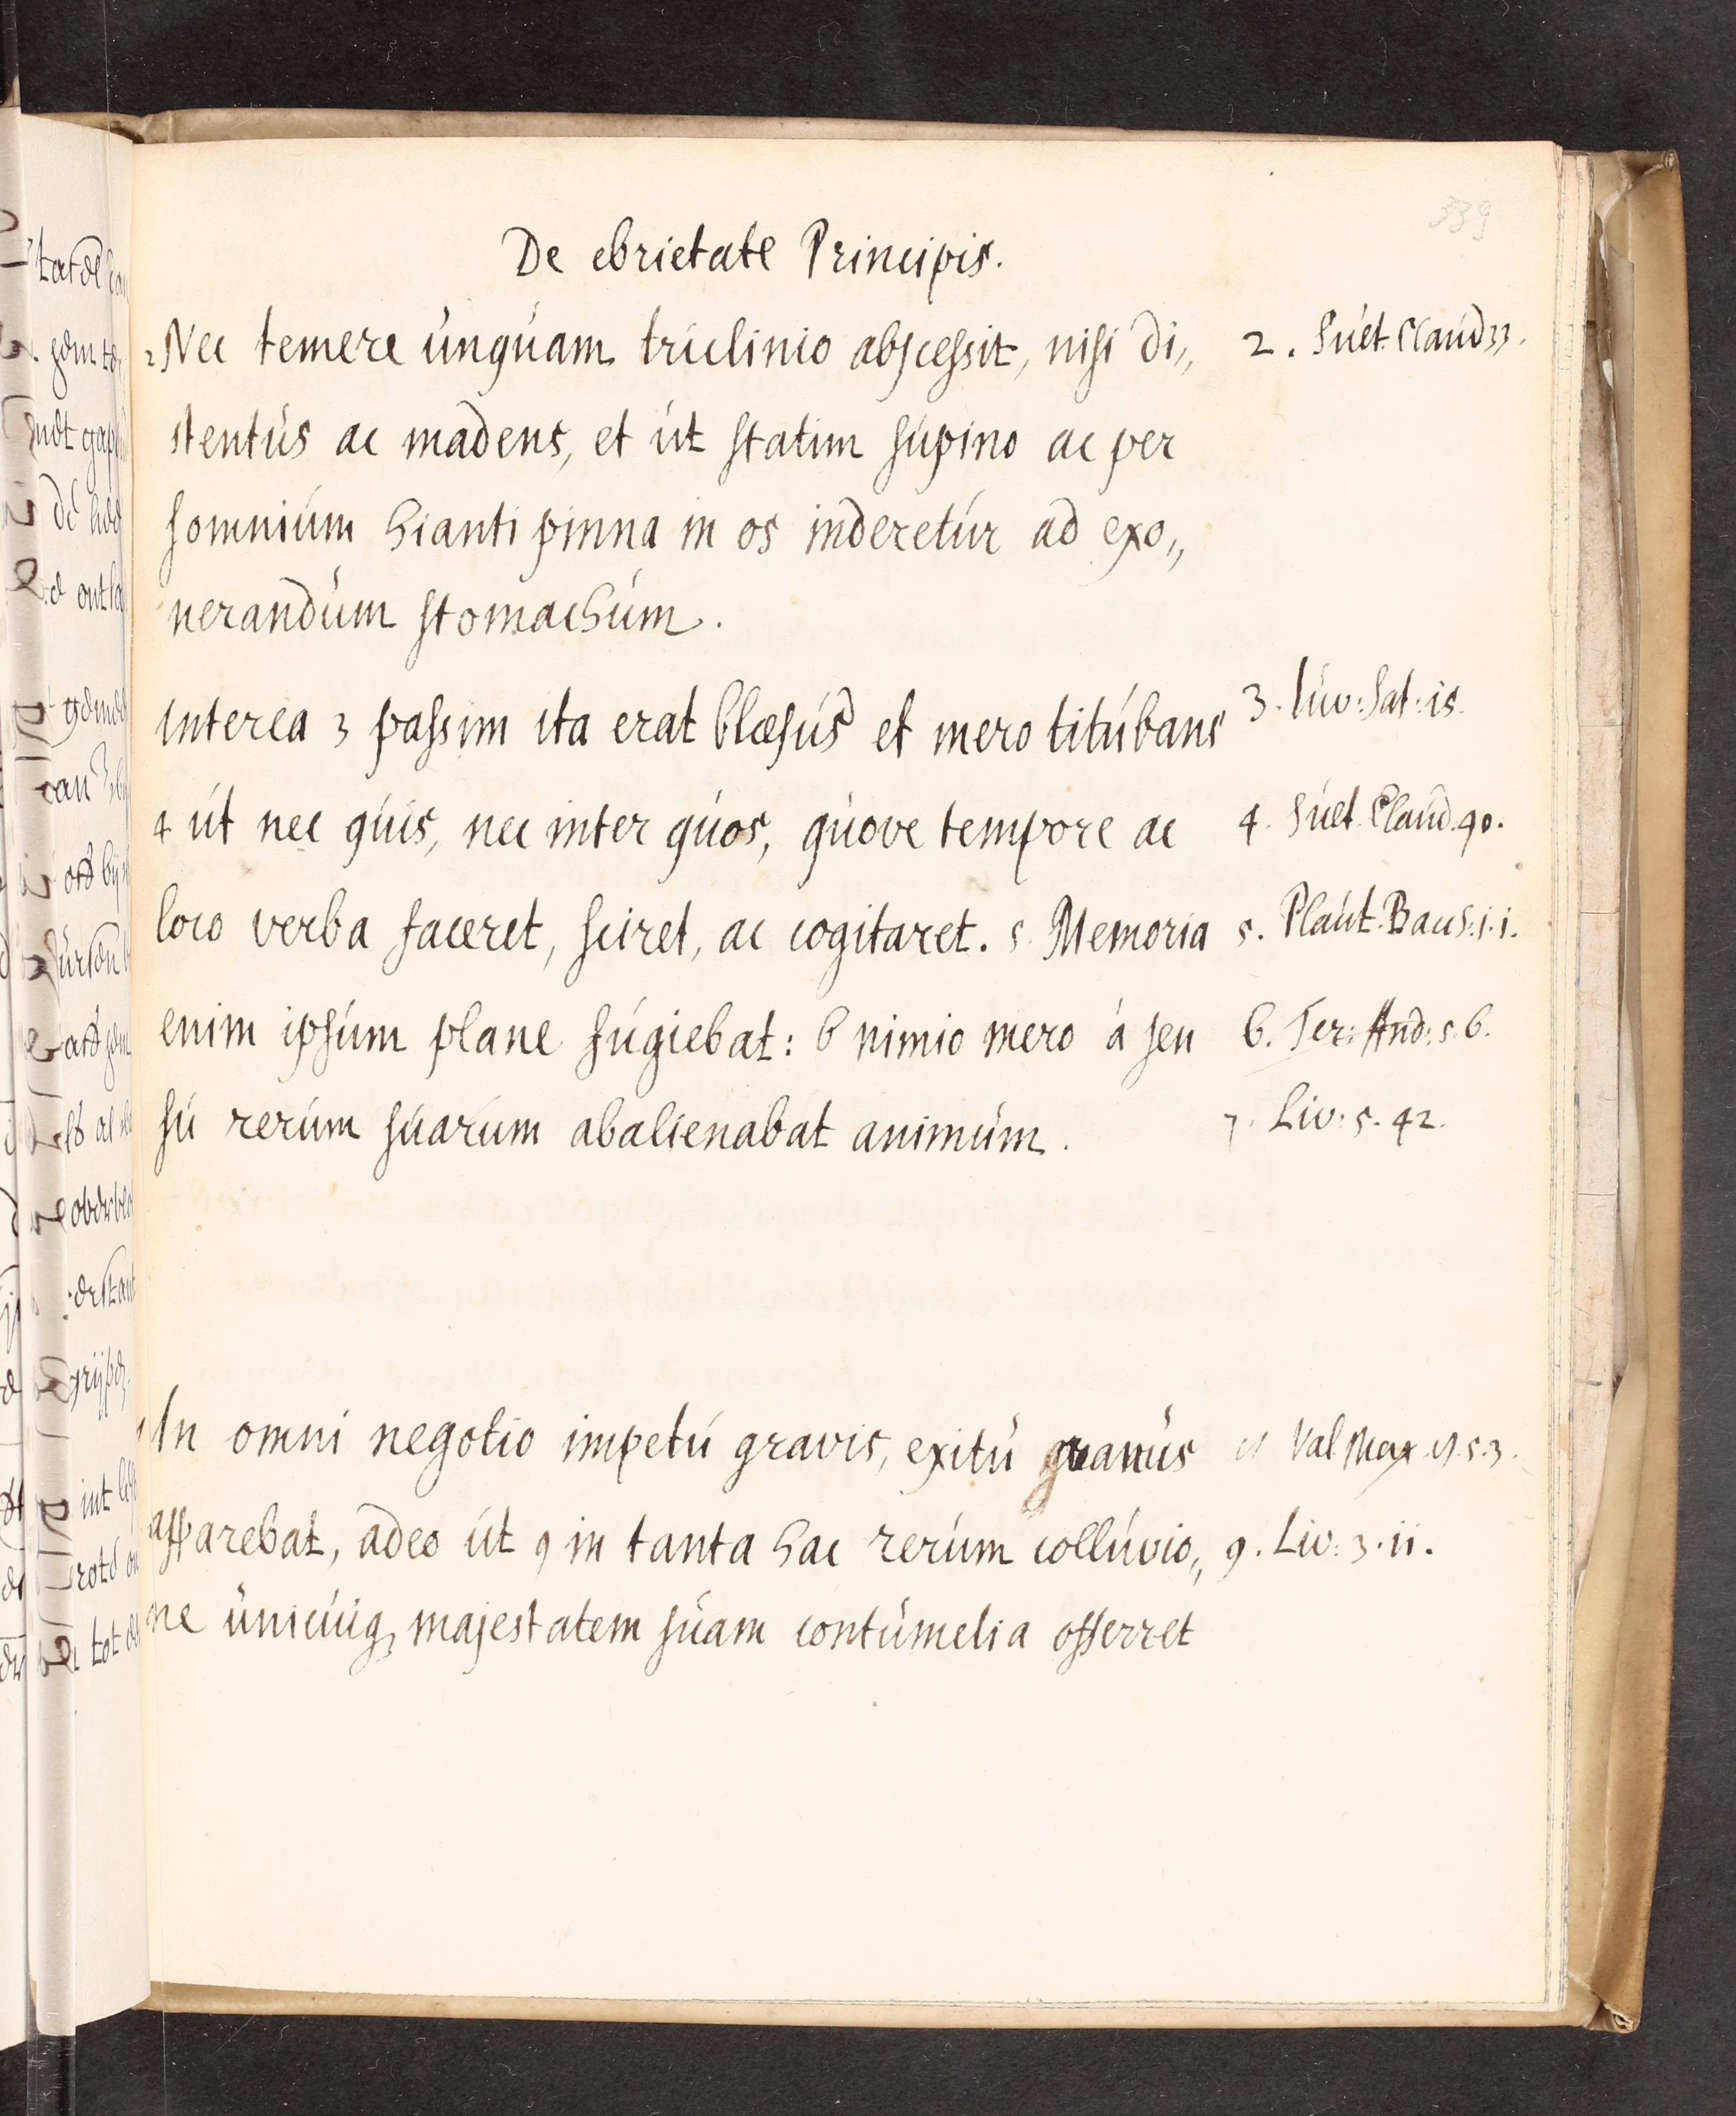 339
De ebrietate Principis.
2 Nec temere unquam triclinio abscessit, nisi di„ 2. Suet. Claud 33.
stentus ac madens, et ut statim supino ac per
somnium hianti pinna in os inderetur ad exo„
nerandum stomachum.
interea 3 passim ita erat blæsus et mero titubans 3. Iuv: Sat: 15.
4 ut nec quis, nec inter quos, quove tempore ac 4. Suet. Claud. 40.
loco verba faceret, sciret, ac cogitaret. 5. Memoria 5. Plaut. Bach. 1. 1.
enim ipsum plane fugiebat: 6 nimio mero à sen 6. Ter: And: 5. 6.
su rerum suarum abalienabat animum. 7. Liv: 5. 42.
In omni negotio impetu gravis, exitu vanus Val Max 5. 3.
apparebat, adeo ut 9 in tanta hac rerum colluvio„ 9. Liv: 3. 11.
ne unicuiq, majestatem suam contumelia offerret